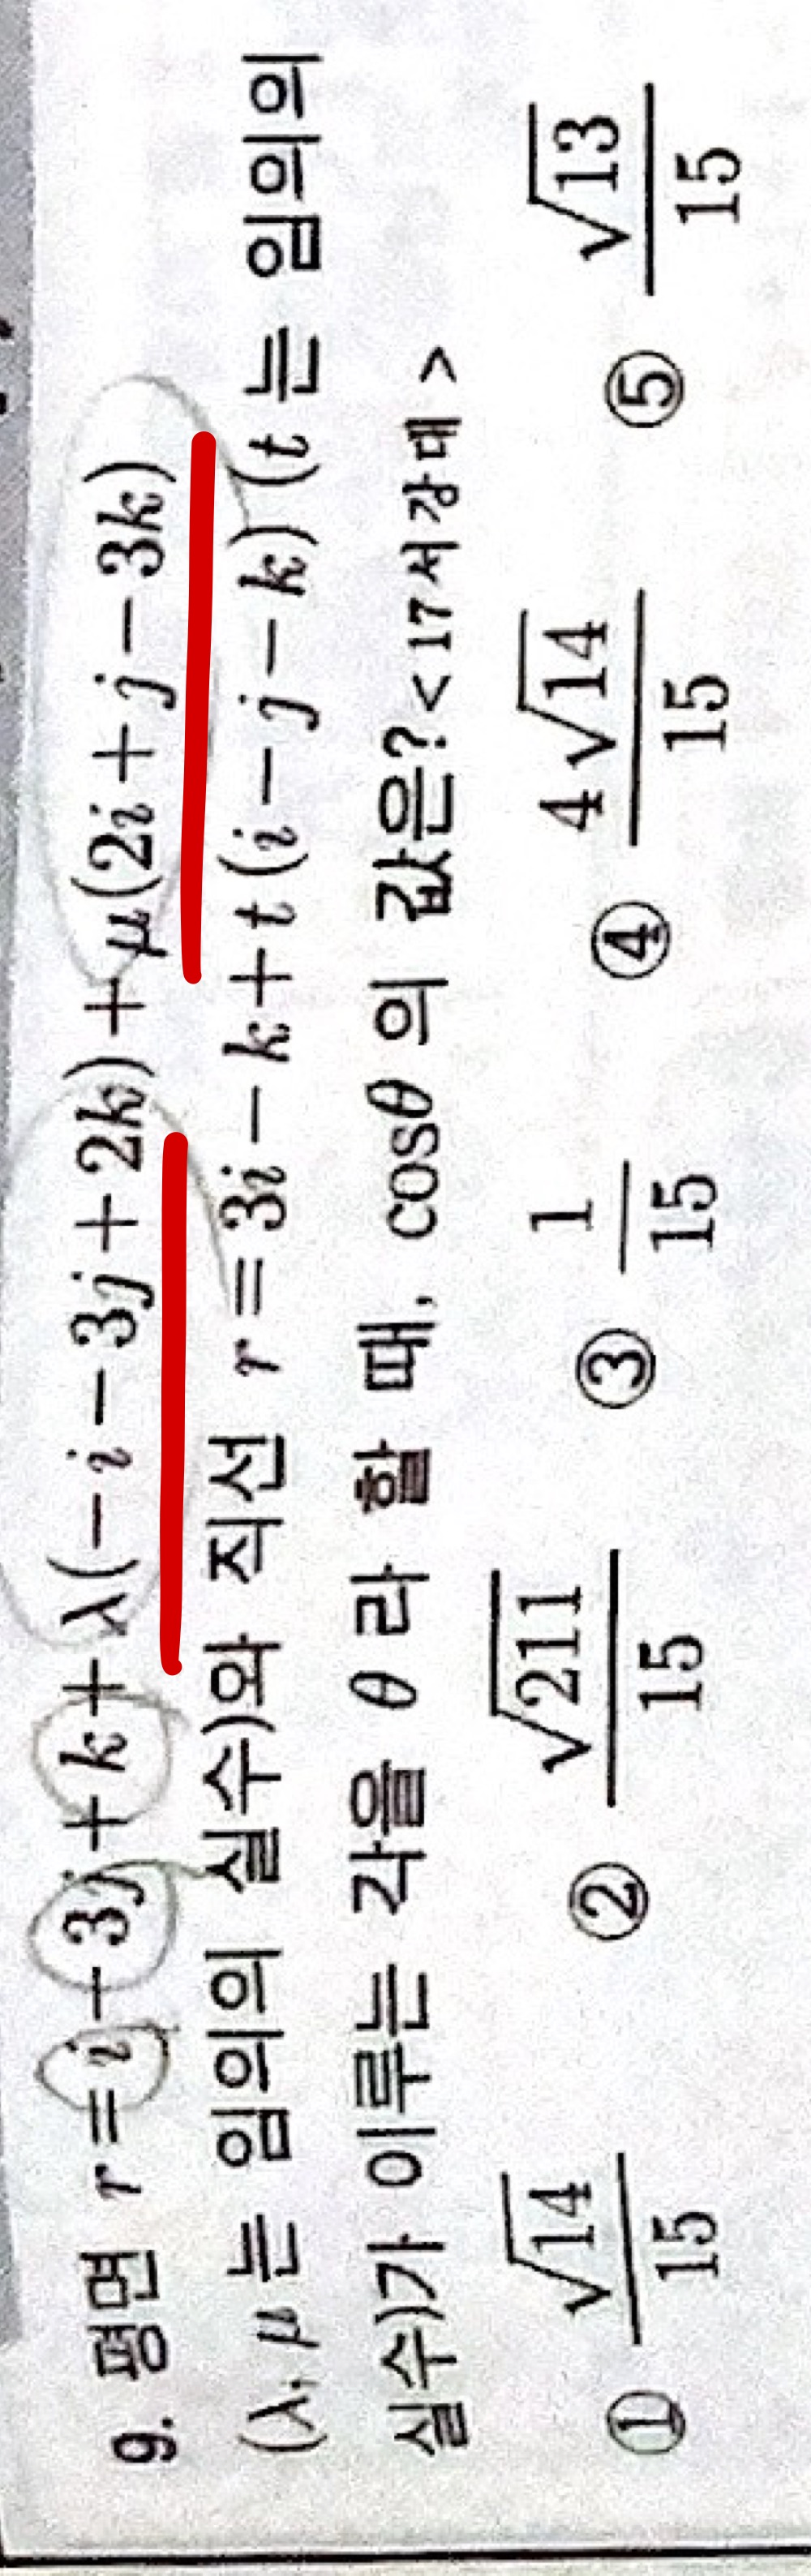 9. 평면 r = i - 3j + k + λ(-i - 3j + 2k) + μ(2i + j - 3k)
(λ, μ는 임의의 실수)와 직선 r = 3i - k + t(i - j - k) (t는 임의의
실수)가 이루는 각을 θ라 할 때, cosθ의 값은? <17서강대>
① √14/15 ② √211/15 ③ 1/15 ④ 4√14/15 ⑤ √13/15